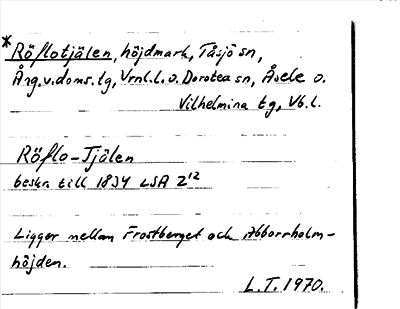 *Röflotjälen, höjdmark, Tåsjö sn,
Ång.v.doms.lg, Vrnl.l. o. Dorotea sn, Åsele o.
Vilhelmina tg, Vb.l.
Röflo-Tjälen
beskr till 1834 LSA Z¹²
Ligger mellan Frostberget och Abborrholm-
höjden.
L.T. 1970.